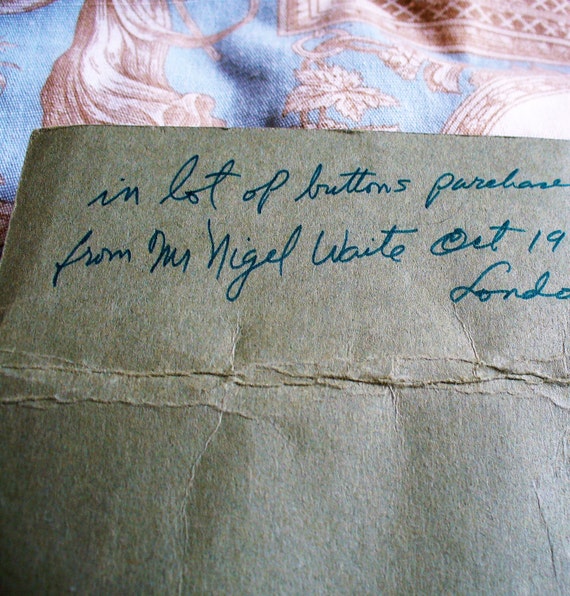 in lot of buttons purchase
from Mr Nigel Waite Oct 19
Londo